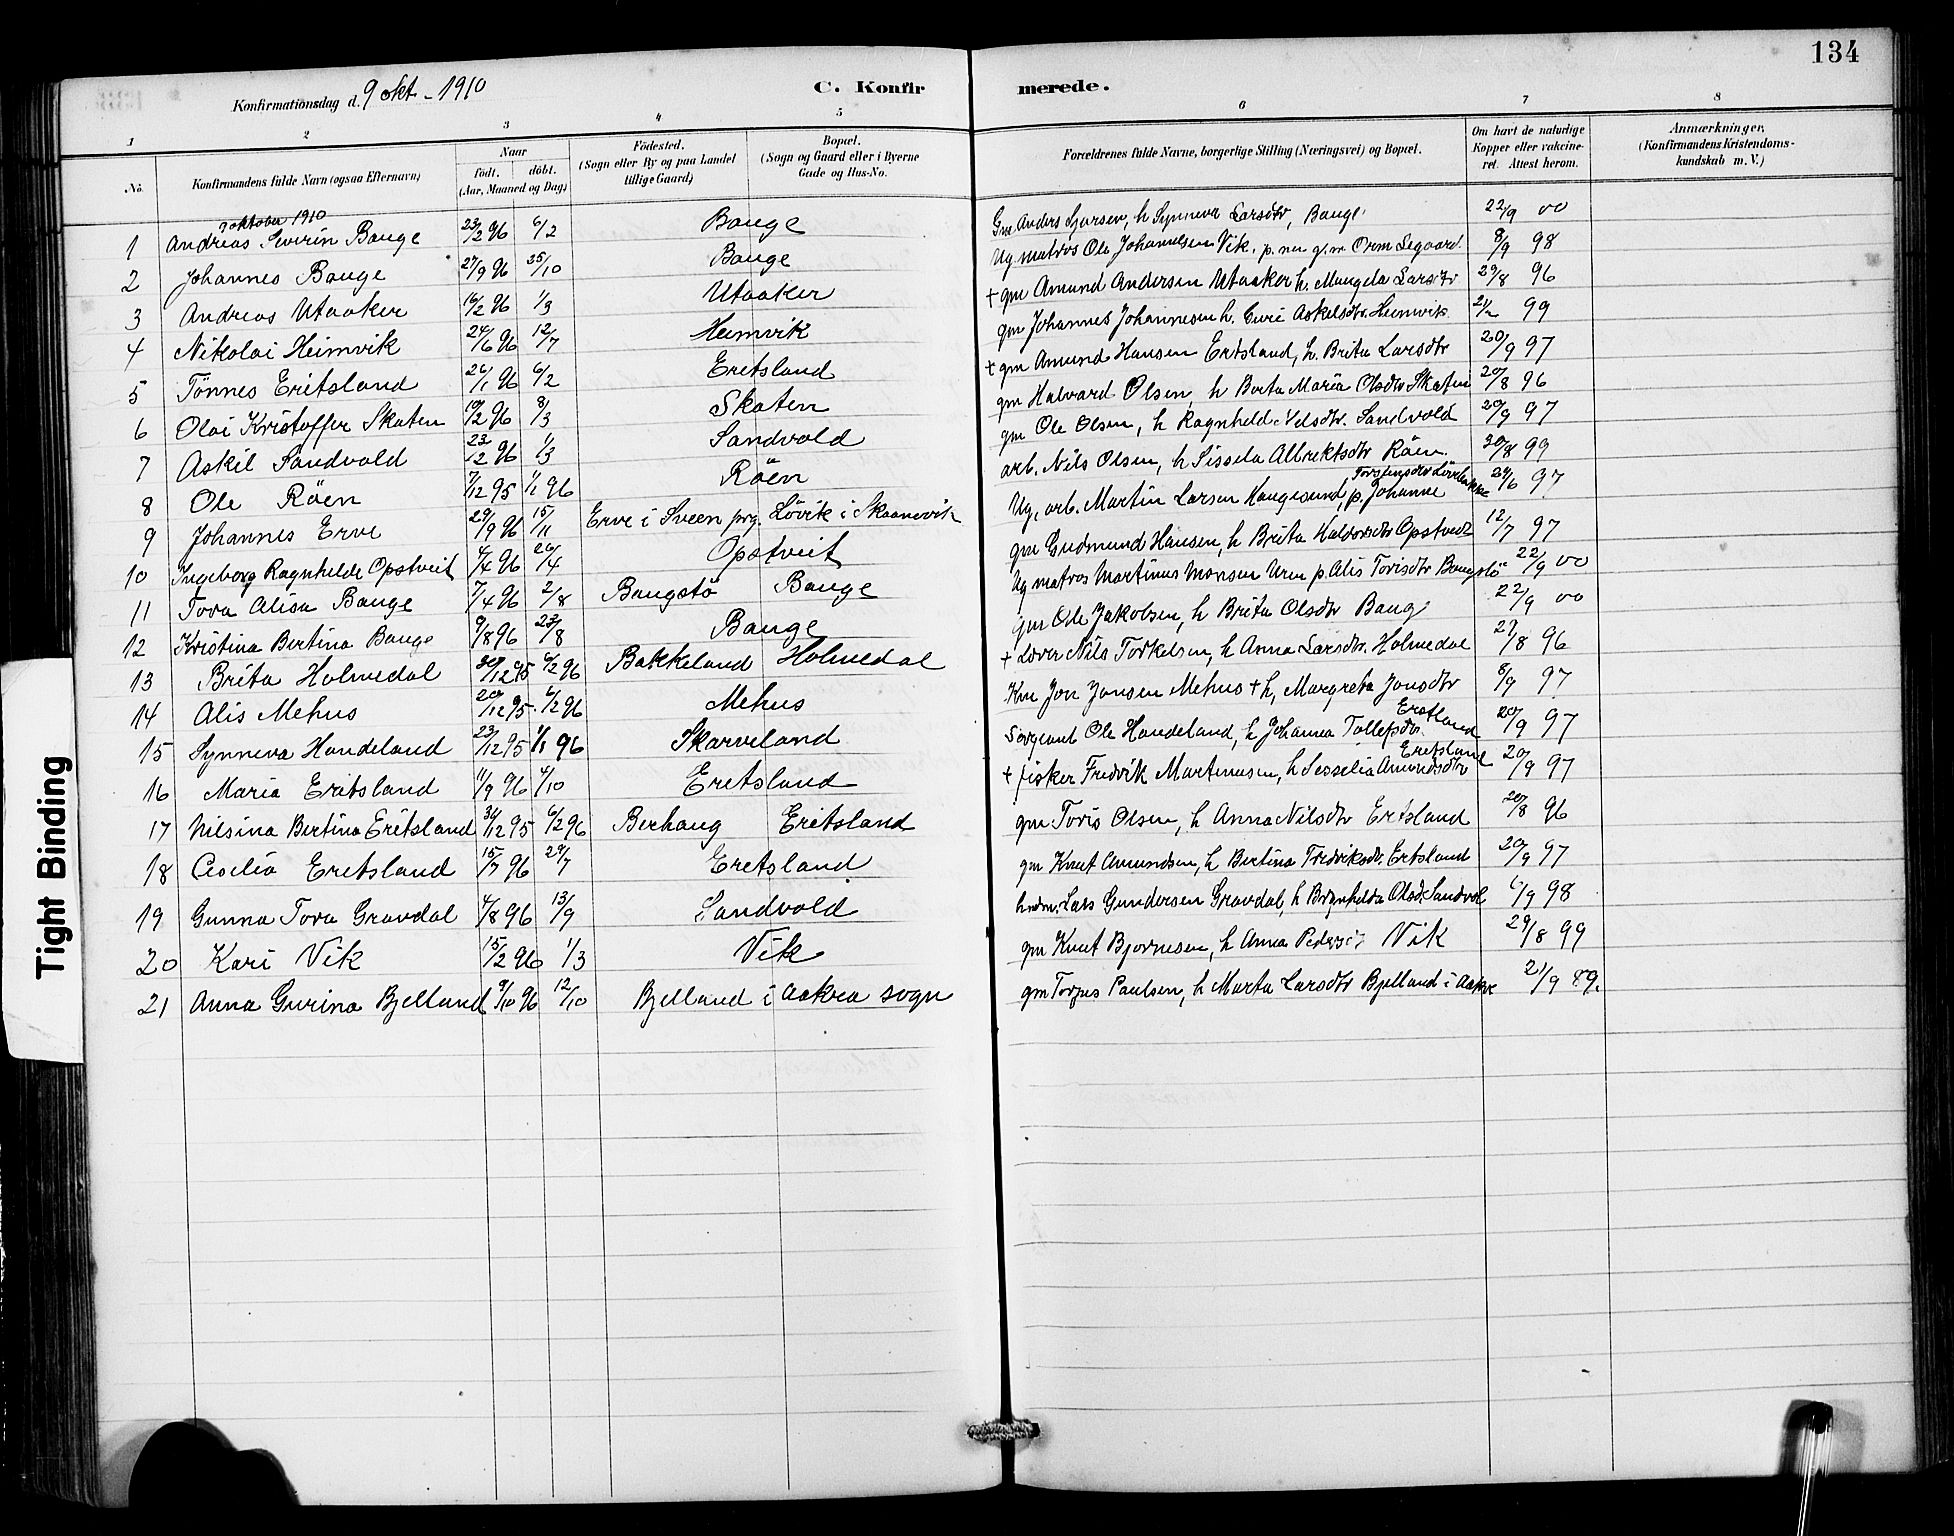 134
Konfirmationsdag d. 9 okt. 1910 C. Konfirmerede.
1 2 3 4 5 6 7 8
No. Konfirmandens fulde Navn (ogsaa Efternavn) Naar födt. döbt. (Aar, Maaned og Dag) Födested. (Sogn eller By og paa Landet tillige Gaard) Bopæl. (Sogn og Gaard eller i Byerne Gade og Hus-No. Forældrenes fulde Navne, borgerlige Stilling (Næringsvei) og Bopæl. Om havt de naturlige Kopper eller vakcineret. Attest herom. Anmærkninger. (Konfirmandens Kristendomskundskab m. V.)
9 oktober 1910
1 Andreas Severin Bauge 23/2 96 6/2 Bauge Gm Anders Sjursen, h Synneva Larsdtr, Bauge 22/9 00
2 Johannes Bauge 27/9 96 25/10 Bauge Ug matros Ole Johannesen Vik. p. nu g.m Orm Segaard. 8/9 98
3 Andreas Utaaker 16/2 96 1/3 Utaaker + gm Amund Andersen Utaaker h. Mangela Larsdtr 29/8 96
4 Nikolai Heimvik 24/6 96 12/7 Heimvik gm Johannes Johannesen h. Guri Askelsdtr. Heimvik 21/2 99
5 Tönnes Eritsland 26/1 96 6/2 Eretsland + gm Amund Hansen Ertsland, h. Brita Larsdtr 20/9 97
6 Olai Kristoffer Skaten 10/2 96 8/3 Skaten gm Halvard Olsen, h Berta Maria Olsdtr Skaten 20/8 96
7 Askil Sandvold 23/12 96 1/3 Sandvold gm Ole Olsen, h Ragnheld Nelsdtr. Sandvold 20/9 97
8 Ole Röen 7/12 95 1/1 96 Röen arb. Nils Olsen, h Sissela Albrektsdtr Röen. 30/8 99
9 Johannes Erve 29/9 96 15/11 Erve i Sveen prg. Lövik i Skaanevik Ug, arb. Martin Larsen Haugesund, p. Johanne Torstensdtr 24/6 97
10 Ingeborg Ragnhelde Opstveit 4/4 96 26/4 Opstveit gm Gudmund Hansen, h Brita Halvorsdtr Opstveit 12/7 97
11 Tora Alisa Bauge 7/4 96 2/8 Baugstö Bauge Ug matros Martinus Monsen Uren p. Alis Torisdtr Baugstö 22/9 00
12 Kristina Bertina Bauge 9/8 96 23/8 Bauge gm Ole Jakobsen, h Brita Olsdtr Baug 22/9 00
13 Brita Holmedal 30/12 95 6/2 96 Bakkeland Holmedal + Lærer Nils Torkelsen, h Anna Larsdtr. Holmedal 27/8 96
14 Alis Mehus 20/12 95. 6/2 96 Mehus Km Jon Jonsen Mehus + h, Margreta Jonsdtr 8/9 97
15 Synneva Handeland 23/12 95 1/1 96 Skarveland Sergeant Ole Handeland, h Johanna Tollefsdtr. Erstland 20/9 97
16 Maria Eratsland 11/9 96 4/10 Eretsland + fisker Fredvik Martinusen, h Sesselia Amundsdtr Eretsland 20/9 97
17 Nilsina Bertina Eritsland 31/12 95 6/2 96 Berhaug Eritsland gm Toris Olsen, h Anna Nilsdtr Ertsland 20/8 96
18 Cecilia Eretsland 15/7 96 29/7 Eretsland gm Knut Amundsen, h Bertina Fredriksdtr. Ertsland 20/9 97
19 Gunna Tora Gravdal 4/8 96 13/9 Sandvold husm. Lars Gundersen Gravdal, h Brynhelda Olsd. Sandvol 6/9 98
20 Kari Vik 15/2 96 1/3 Vik gm Knut Bjornesen, h Anna Pedersdtr Vik 29/8 99
21 Anna Gurina Bjelland 9/10 96 12/10 Bjelland i Aakra sogn gm Torjus Paulsen, h Marta Larsdtr Bjelland i Aakre 21/9 89.
Tight Binding